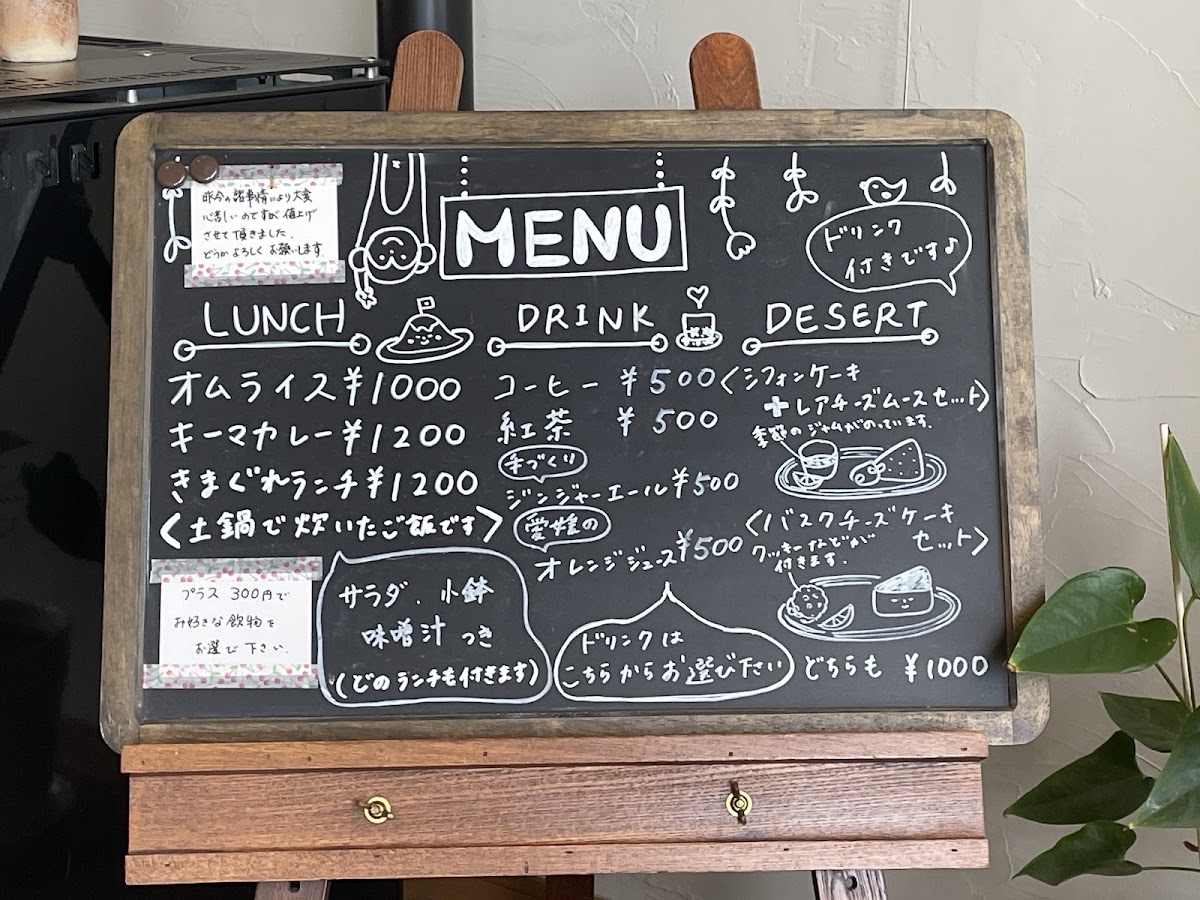 昨今の諸事情により大変
心苦しいのですが値上げ
させて頂きました。
どうかよろしくお願いします。
MENU
ドリンク
付きです♪
LUNCH
オムライス ¥1000
キーマカレー ¥1200
きまぐれランチ ¥1200
〈土鍋で炊いたご飯です〉
プラス 300円で
お好きな飲物を
お選び下さい。
サラダ、小鉢
味噌汁つき
(どのランチも付きます)
DRINK
コーヒー ¥500
紅茶 ¥500
手づくり
ジンジャーエール ¥500
愛媛の
オレンジジュース ¥500
ドリンクは
こちらからお選び下さい
DESERT
〈シフォンケーキ
+レアチーズムースセット〉
季節のジャムがのっています。
〈バスクチーズケーキ
セット〉
クッキーなどが
付きます。
どちらも ¥1000